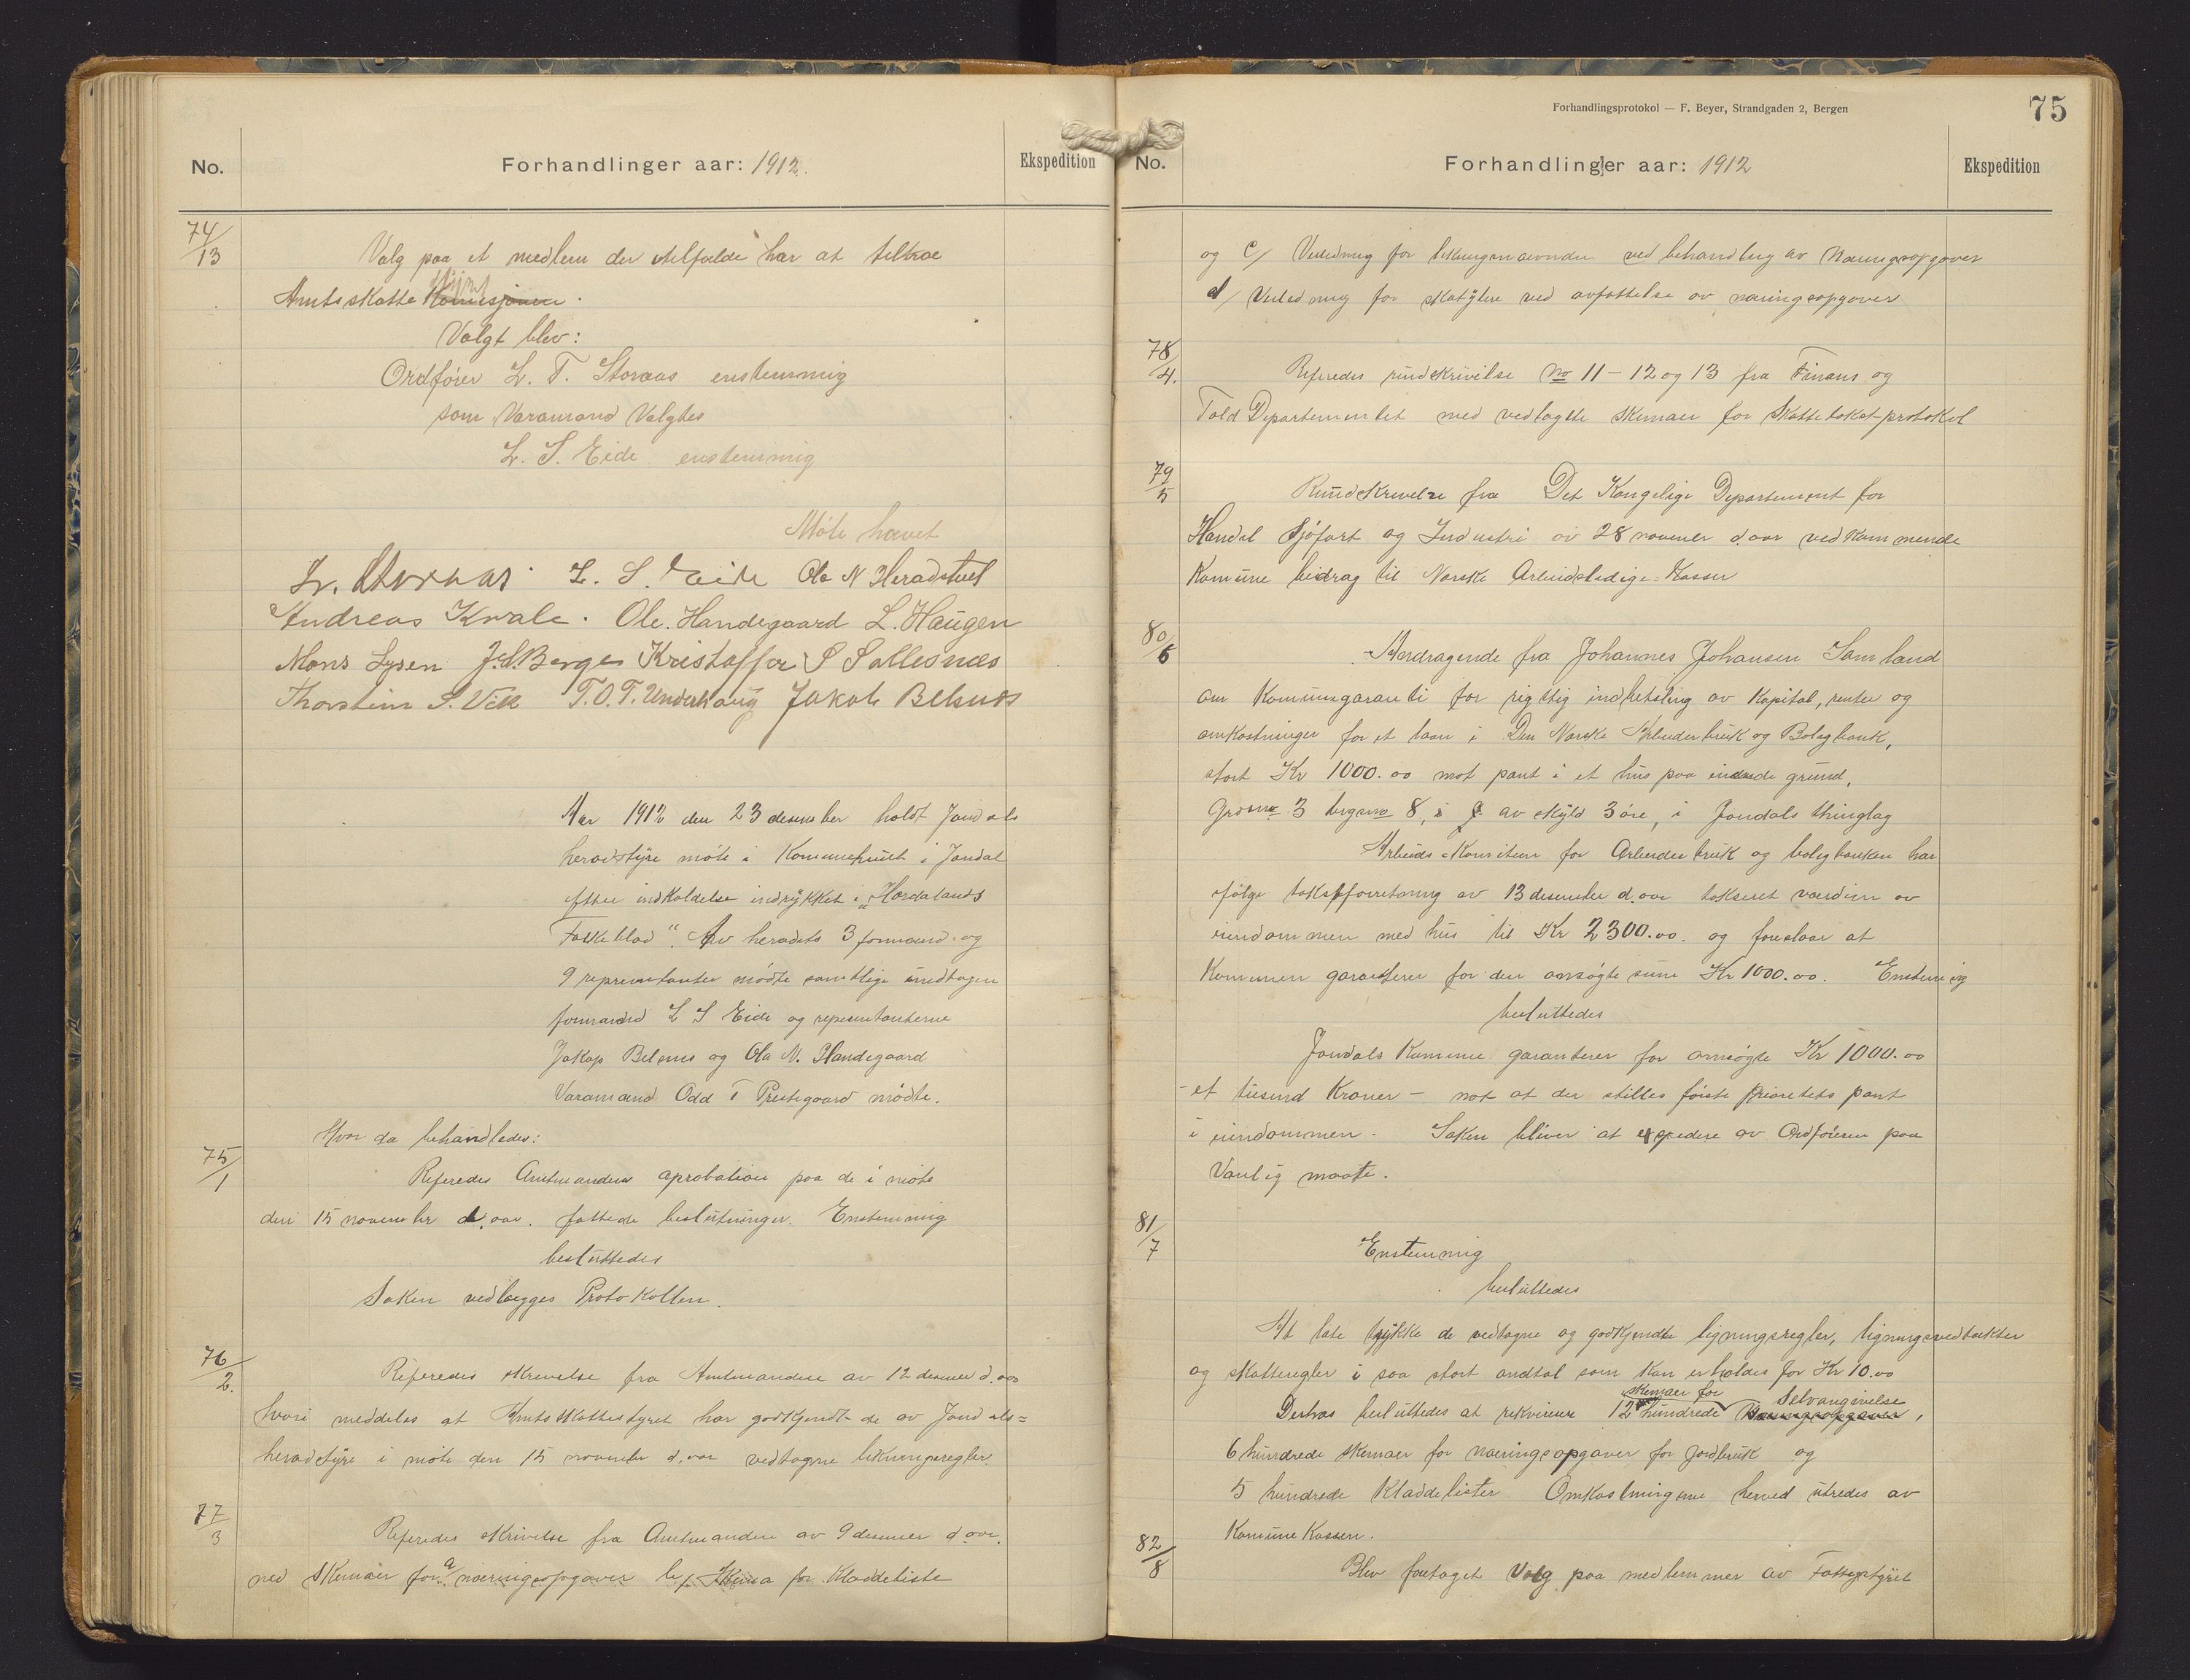 No.
Forhandlinger aar: 1912.
Ekspedition
74/13
Valg paa et medlem der utelfælde har at tiltræ
Amtsskatte Komisjonen styret.
Valgt blev:
Ordfører L. T. Storaas enstemmig
som Varamand Valgtes
L. S. Eide enstemmig
Møte hævet
L. Storaas L. S. Eide Ola N Heradstveit
Andreas Kvale. Ole. Handegaard L. Haugen
Mons Lysen J. S Berge Kristoffer S Sollesnæs
Thorstein S. Vik T. O. T. Underhaug Jakob Belsnæs
Aar 1912 den 23 desember holdt Jondals
heradstyre møte i Kommunehuset i Jondal
efter indkaldelse indrykket i „Hordalands
Folkeblad". Av heradets 3 formænd og
9 representanter mødte samtlige undtagen
formænd L S Eide og representanterne
Jakop Belsnæs og Ola N. Handegaard
Varamand Odd T Prestegaard mødte.
Hvor da behandledes:
75/1
Referedes Amtmandens aprobation paa de i møte
den 15 november d. aar. fattede beslutninger. Enstemmig
besluttedes
Saken vedlægges Protokollen.
76/2.
Referedes skrivelse fra Amtmanden av 12 desmer d. aar
hvori meddeles at Amtsskattestyret har godkjendt de av Jondals=
heradstyre i møte den 15 november d. aar vedtagne likningsregler.
77/3
Referedes skrivelse fra Amtmanden av 9 desmer d aar.
med skemaer for a/ næringsopgaver b/ Skema for Kladdeliste
Forhandlingsprotokol — F. Beyer, Strandgaden 2, Bergen
75
No.
Forhandlinger aar: 1912
Ekspedition
og c/ Veiledning for likningsnævnden ved behandling av Næringsopgaver
d/ Veiledning for skatytere ved avfattelse av næringsopgaver
78/4.
Referedes rundskrivelse No 11 – 12 og 13 fra Finans og
Told Departementet med vedlagte skemaer for Skattetakst-protokol
79/5
Rundskrivelse fra Det Kongelige Departement for
Handel Sjøfart og Industri av 28 november d. aar vedkommende
Komune bidrag til Norske Arbeidsledige=Kasser
80/6
Andragende fra Johannes Johansen Samland
om Komunegaranti for rigttig indbetaling av Kapital, renter og
omkostninger for et laan i Den Norske Arbeiderbruk og Boligbank,
stort Kr 1000.00 mot pant i et hus paa eiende grund,
Grdsno 3 brgsno 8, av skyld 3 øre, i Jondals thinglag
Arbeids=Komiteen for Arbeiderbruk og boligbanken har
ifølge takstforretning av 13 desember d. aar takseret værdien av
eiendommen med hus til Kr 2300.00. og foreslaar at
Komunen garanterer for den ansøgte sum Kr 1000.00. Enstemmig
besluttedes
Jondals Komune garanterer for ansøgte Kr 1000.00
– et tusend Kroner – mot at der stilles første prioretets pant
i eiendommen. Saken bliver at expedere av Ordføreren paa
Vanlig maate.
81/7
Enstemmig
besluttedes
At late trykke de vedtagne og godkjendte ligningsregler, ligningsvedtækter
og skatteregler i saa stort andtal som kan erholdes for Kr 10.00
Derhos besluttedes at rekvirere 12 hundrede skemaer for Næringsopgaver Selvangivelse,
6 hundrede skemaer for næringsopgaver for Jordbruk og
5 hundrede Kladdelister Omkostningerne herved utredes av
Komune Kassen.
82/8
Blev foretaget Valg paa medlemmer av Fattigstyret